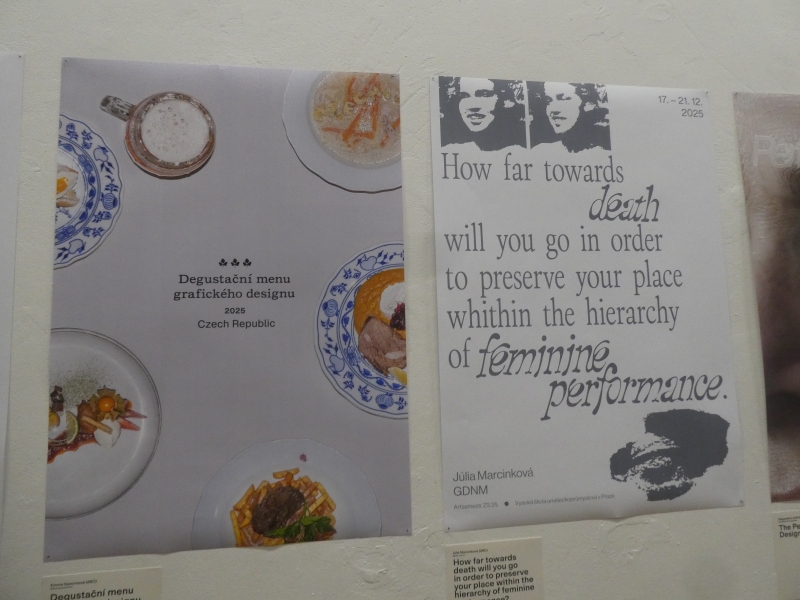 Degustační menu
grafického designu
2025
Czech Republic
17. – 21. 12.
2025
How far towards
death
will you go in order
to preserve your place
whithin the hierarchy
of feminine
performance.
Júlia Marcinková
GDNM
Degustační menu
How far towards
death will you go
in order to preserve
your place within the
hierarchy of feminine
The Pe
Design